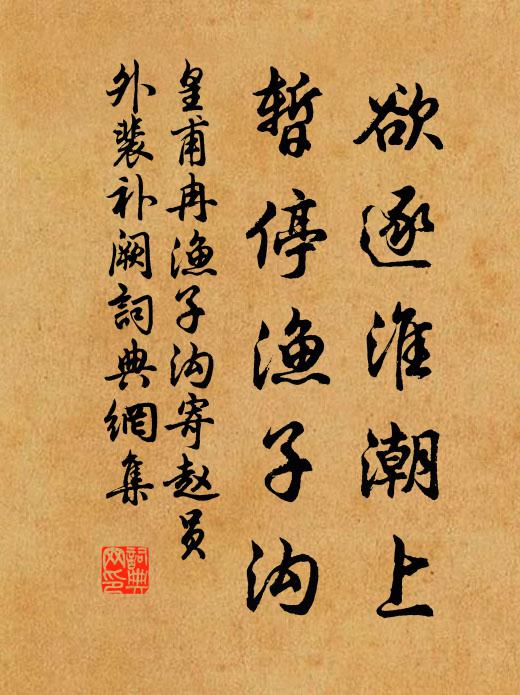 欲逐淮潮上
暂停渔子沟
皇甫冉渔子沟寄赵员
外裴补阙詞典網集
詞典
网印